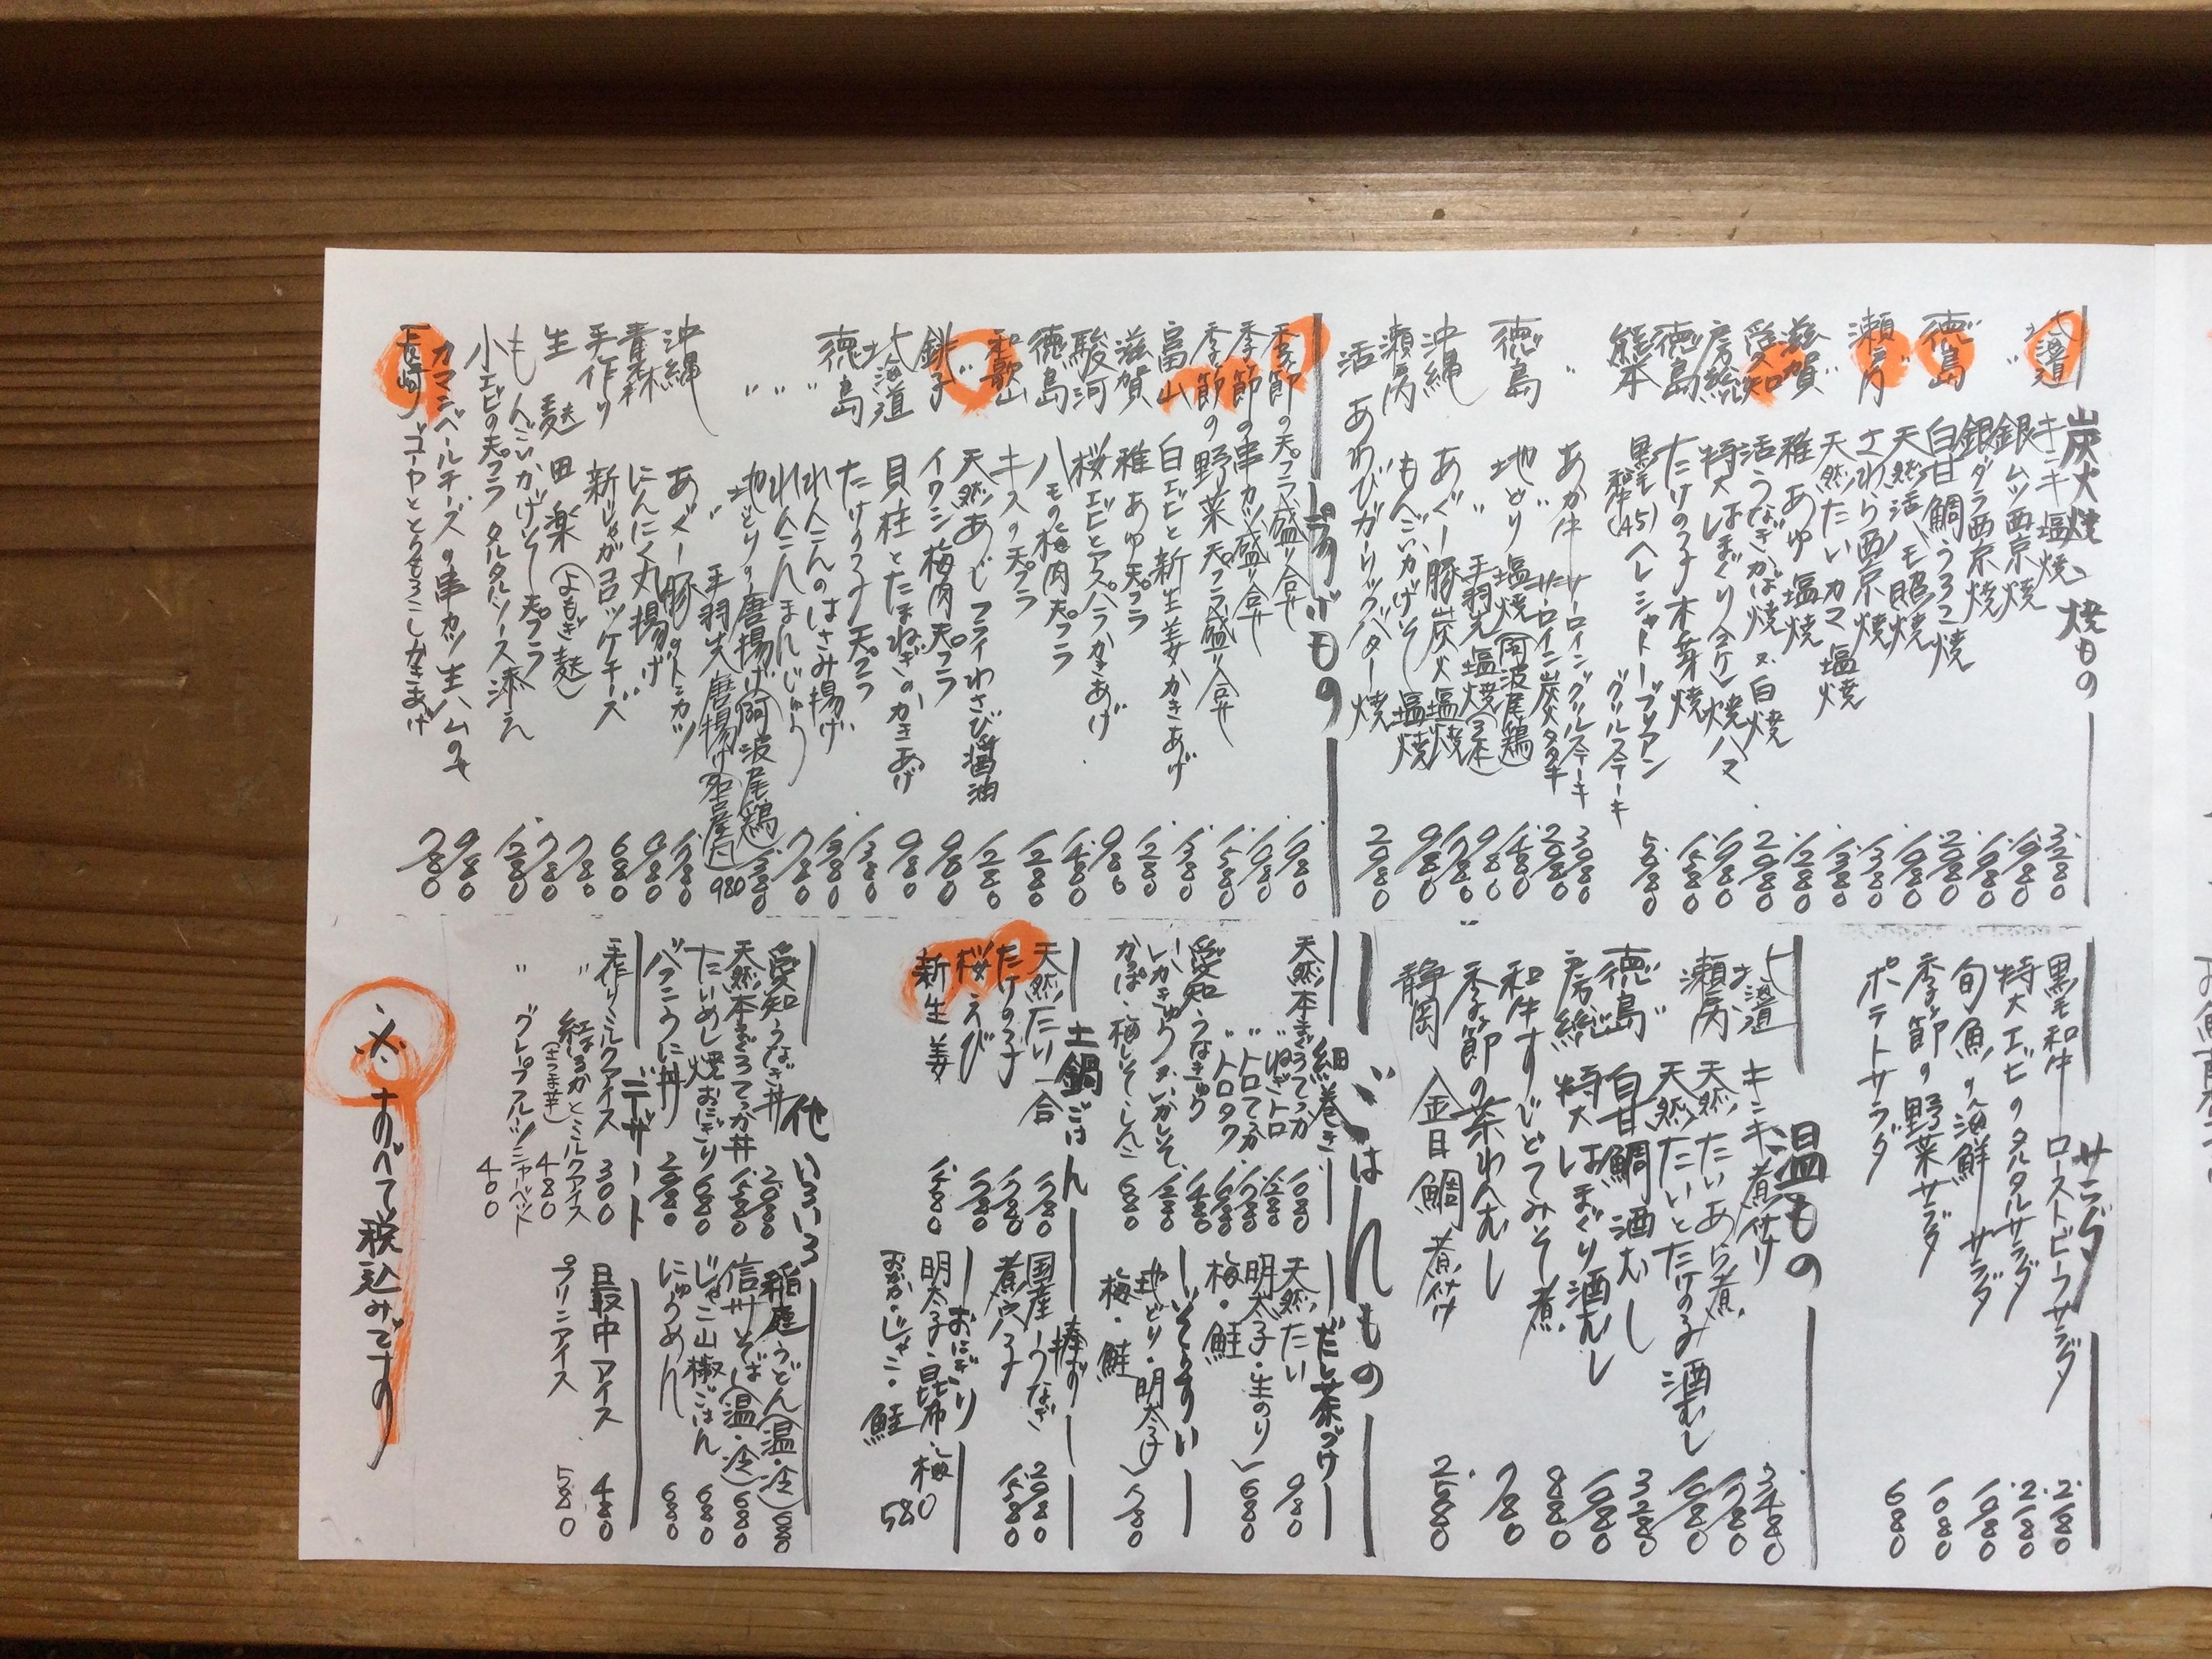 炭火焼、焼もの
北海道 キンキ塩焼 3.280
〃 銀ムツ西京焼 1.980
銀ダラ西京焼 1.980
徳島 白甘鯛うろこ焼 2.080
〃 天然活ハモ照焼 1.980
瀬戸内 さわら西京焼 1.380
〃 天然たいカマ塩焼 1.380
滋賀 稚あゆ塩焼 1.280
愛知 活うなぎかば焼又白焼 2.980
房総 特大はまぐり 焼ハマ 1.980
徳島 たけの子木の芽焼 1.580
熊本 黒毛和牛(A5)ヘレシャトーブリアン グリルステーキ 5.980
〃 あか牛 サーロイングリルステーキ 3.080
サーロイン炭火タタキ 2.080
徳島 地どり塩焼(阿波尾鶏) 1.480
〃 〃 手羽先塩焼(3本) 980
沖縄 あぐー豚炭火塩焼 1.780
瀬戸内 もんごいかげそ塩焼 980
活 あわびガーリックバター焼 2.980
揚げもの
季節の天プラ盛り合せ 1.980
季節の串カツ盛り合せ 1.980
季節の野菜天プラ盛り合せ 1.580
富山 白エビと新生姜かきあげ 1.380
滋賀 稚あゆ天プラ 1.280
駿河 桜エビとアスパラかきあげ 980
徳島 ハモの梅肉天プラ 1.480
和歌山 キスの天プラ 1.280
〃 天然あじフライわさび醤油 1.280
銚子 イワシ梅肉天プラ 980
北海道 貝柱とたまねぎのかきあげ 980
徳島 たけの子天プラ 1.380
〃 れんこんのはさみ揚げ 1.380
〃 れんこんまんじゅう 780
〃 地どりの唐揚げ(阿波尾鶏) 1.380
〃 手羽先唐揚げ(名古屋風) 980
沖縄 あぐー豚のトンカツ 1.780
青森 にんにく丸揚げ 980
手作り 新じゃがコロッケチーズ 680
生麩田楽(よもぎ麩) 780
もんごいかげそ天プラ 780
小エビの天プラ タルタルソース添え 1.280
カマンベールチーズの串カツ 生ハムのせ 980
長崎 ゴーヤととうもろこしかきあげ 780
サラダ
黒毛和牛ローストビーフサラダ 2.180
特大エビのタルタルサラダ 2.180
旬魚の海鮮サラダ 1.980
季節の野菜サラダ 1.080
ポテトサラダ 680
温もの
北海道 キンキ煮付け 3.480
瀬戸内 天然たいあら煮 1.780
〃 天然たいとたけのこ酒むし 1.980
徳島 白甘鯛酒むし 3.280
房総 特大はまぐり酒むし 1.980
和牛すじどてみそ煮 880
季節の茶わんむし 780
静岡 金目鯛煮付け 2.580
ごはんもの
細巻き
天然本まぐろてっか 1.080
〃 ねぎトロ 1.280
〃 トロてっか 1.780
〃 トロタク 1.680
愛知 うなきゅう 1.480
いかきゅう又いかしそ 1.280
かっぱ・梅しそ・しんこ 680
だし茶づけ
天然たい 980
明太子・生のり
梅・鮭 680
ぞうすい
地どり・明太子
梅・鮭 780
土鍋ごはん
天然たい 一合 1.780
たけの子 1.780
桜えび 1.780
新生姜 1.580
棒ずし
国産うなぎ 2.080
煮穴子 1.580
おにぎり
明太子・昆布・梅
おかか・じゃこ・鮭 580
他いろいろ
愛知うなぎ丼 2.980
天然本まぐろてっか丼 1.580
たいめし焼おにぎり 680
バフンうに丼 2.980
稲庭うどん(温・冷) 680
信州そば(温・冷) 680
じゃこ山椒ごはん 680
にゅうめん 680
デザート
手作りミルクアイス 300
〃 紅はるかとミルクアイス(さつま芋) 480
〃 グレープフルーツシャーベット 400
最中アイス 480
プリンアイス 580
※すべて税込みです